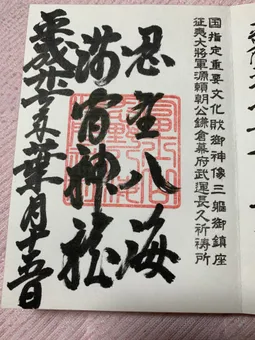 国指定重要文化財御神像三軀御鎮座
征夷大將軍源頼朝公鎌倉幕府武運長久祈祷所
忍野八海
浅間神社
平成廿 年葉月十 日